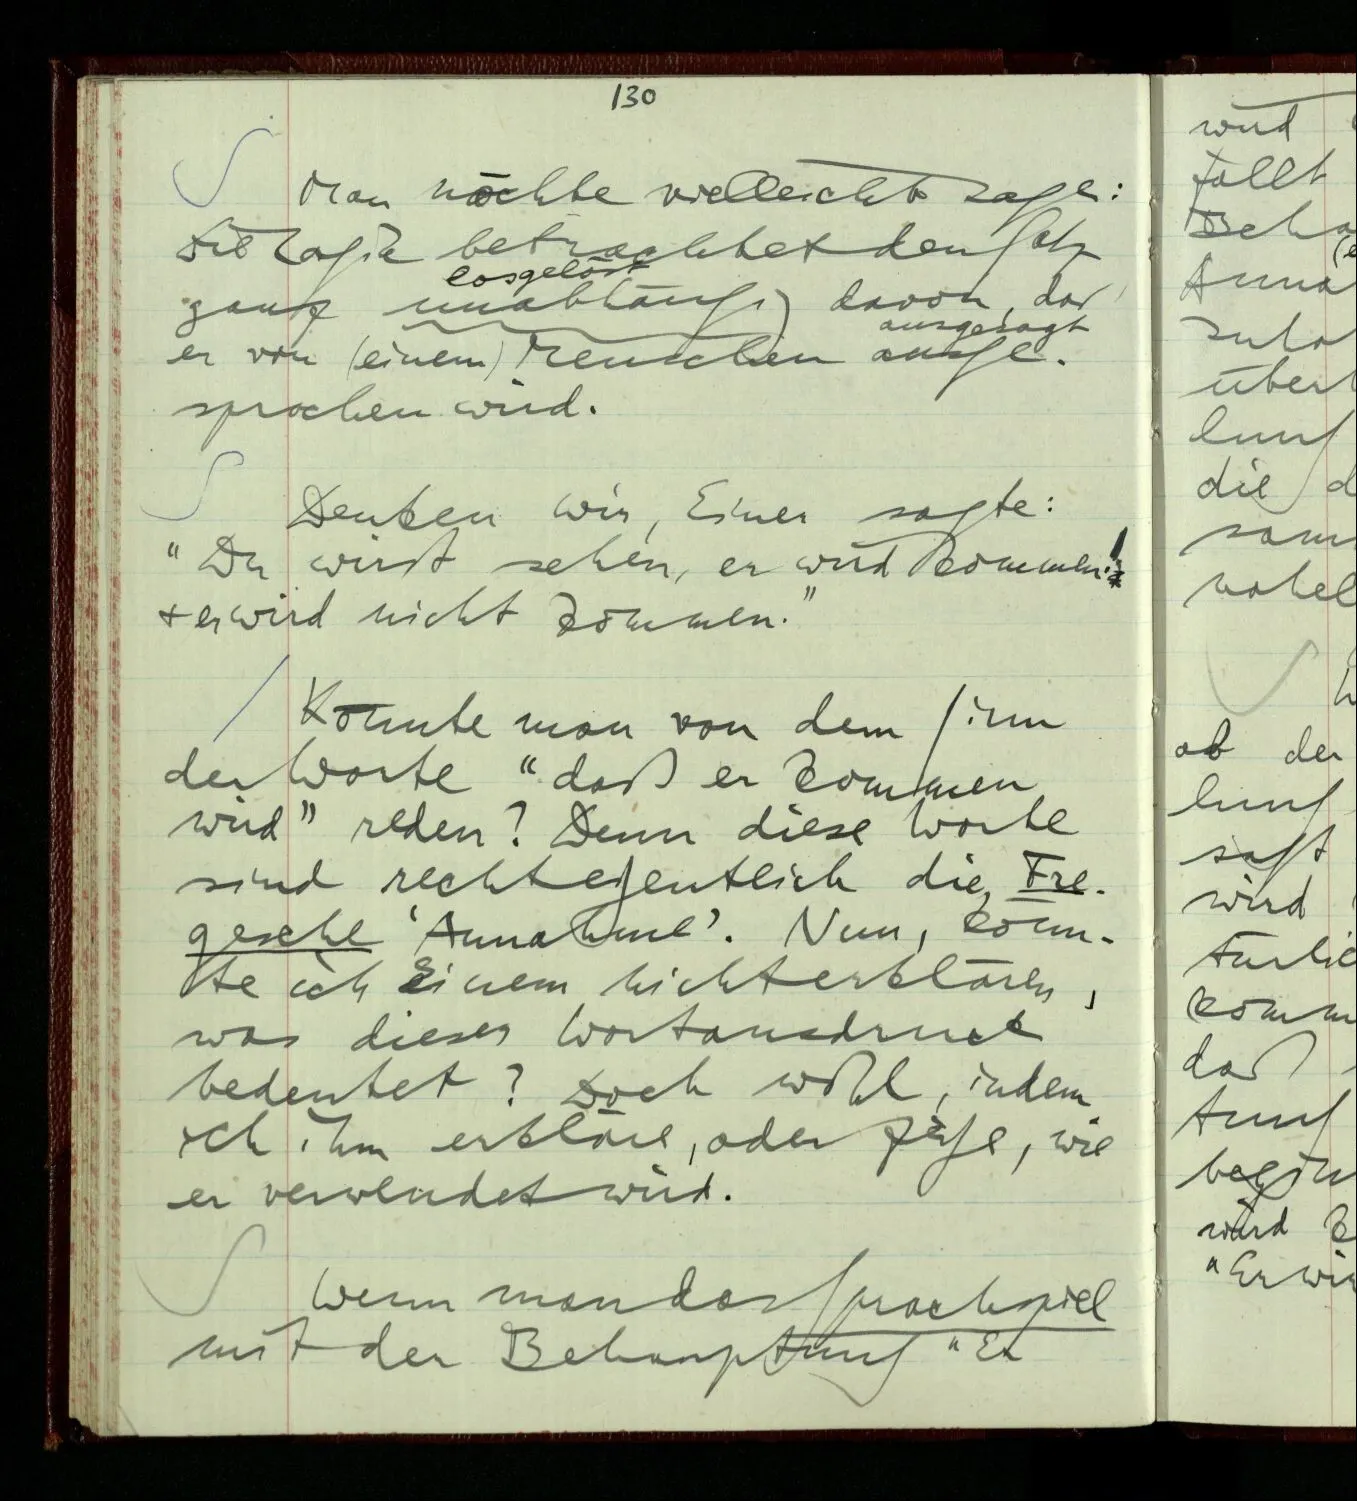 130
Man möchte vielleicht sagen:
Die Logik betrachtet den Satz
losgelöst
ganz unabhängig davon, daß
ausgesagt
er von (einem) Menschen ausge-
sprochen wird.
Denken wir, Einer sagte:
"Du wirst sehen, er wird kommen!
+ er wird nicht kommen."
Könnte man von dem Sinn
der Worte "daß er kommen
wird" reden? Denn diese Worte
sind recht eigentlich die Fre-
gesche 'Annahme'. Nun, könn-
te ich Einem nicht erklären,
was dieser Wortausdruck
bedeutet? Doch wohl, indem
ich ihm erkläre, oder zeige, wie
er verwendet wird.
Wenn man das Sprachspiel
mit der Behauptung "Er
wird
fällt
Beha
Anna
über
lung
die d
ob der
lung
sagt
wird
komm
daß
begin
wird k
"Er wir